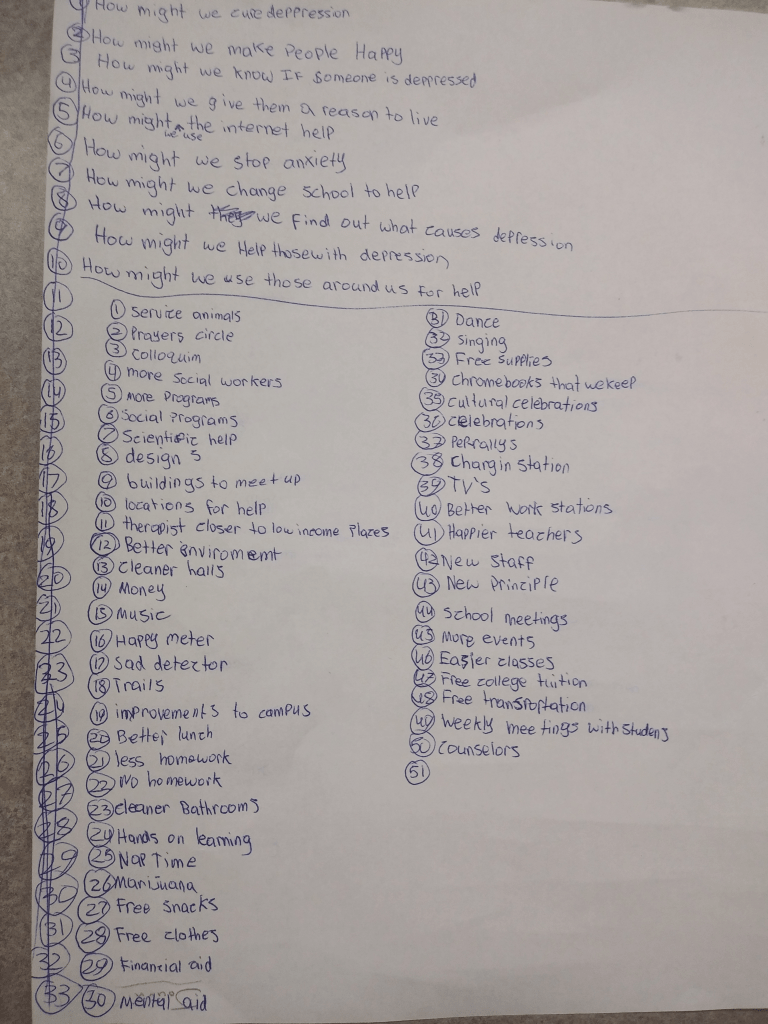 ① How might we cure deppression
② How might we make People Happy
③ How might we know If Someone is depressed
④ How might we give them a reason to live
⑤ How might we use the internet help
⑥ How might we stop anxiety
⑦ How might we change School to help
⑧ How might they we find out what causes depression
⑨ How might we Help those with depression
⑩ How might we use those around us for help
⑪
⑫
⑬
⑭
⑮
⑯
⑰
⑱
⑲
⑳
21
22
23
24
25
26
27
28
29
30
31
32
33
① Service animals
② Prayers circle
③ Colloquim
④ more Social workers
⑤ more Programs
⑥ Social Programs
⑦ Scientific help
⑧ design 5
⑨ buildings to meet up
⑩ locations for help
⑪ therapist closer to low income Places
⑫ Better enviroment
⑬ Cleaner halls
⑭ Money
⑮ Music
⑯ Happy meter
⑰ Sad detector
⑱ Trails
⑲ improvements to campus
⑳ Better lunch
21 less homework
22 No homework
23 cleaner Bathrooms
24 Hands on learning
25 Nap Time
26 Marijuana
27 Free snacks
28 Free clothes
29 Financial aid
30 mental aid
31 Dance
32 singing
33 Free supplies
34 Chromebooks that we keep
35 cultural celebrations
36 celebrations
37 PeP rallys
38 Chargin station
39 TV's
40 Better work stations
41 Happier teachers
42 New Staff
43 New Principle
44 School meetings
45 More events
46 Easier classes
47 Free college tuition
48 Free transportation
49 Weekly meetings with students
50 Counselors
51